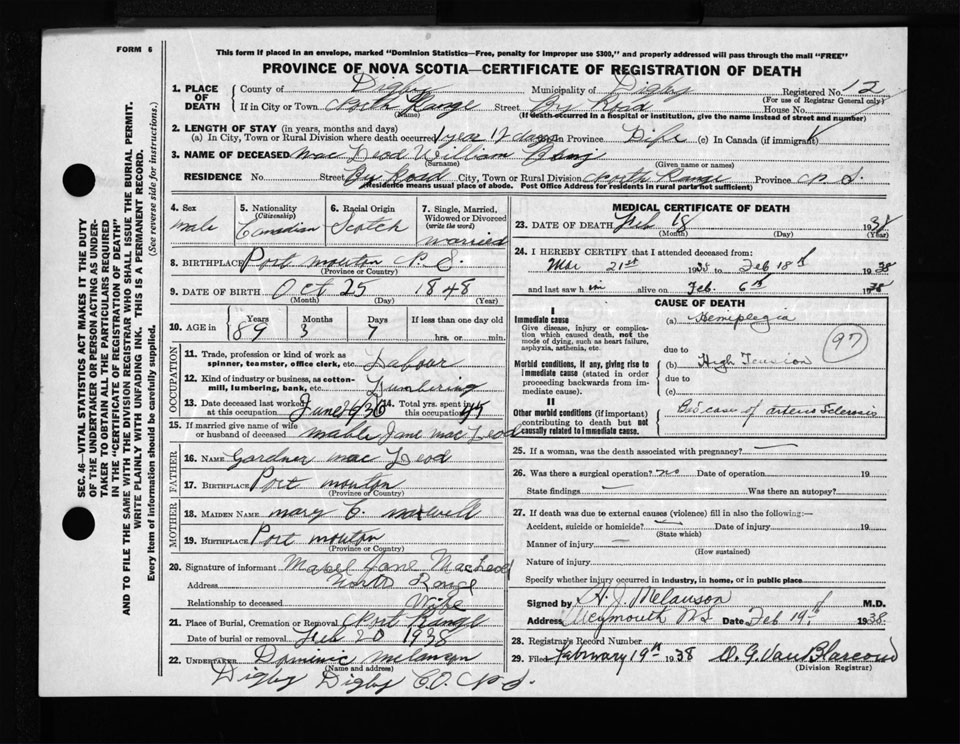 FORM 6
This form if placed in an envelope, marked "Dominion Statistics—Free, penalty for improper use $300," and properly addressed will pass through the mail "FREE"
PROVINCE OF NOVA SCOTIA—CERTIFICATE OF REGISTRATION OF DEATH
SEC. 46—VITAL STATISTICS ACT MAKES IT THE DUTY
OF THE UNDERTAKER OR PERSON ACTING AS UNDER-
TAKER TO OBTAIN ALL THE PARTICULARS REQUIRED
IN THE "CERTIFICATE OF REGISTRATION OF DEATH"
AND TO FILE THE SAME WITH THE DIVISION REGISTRAR WHO SHALL ISSUE THE BURIAL PERMIT.
WRITE PLAINLY WITH UNFADING INK. THIS IS A PERMANENT RECORD.
Every item of information should be carefully supplied. (See reverse side for instructions.)
1. PLACE OF DEATH County of Digby Municipality of Digby Registered No. 12
(For use of Registrar General only)
If in City or Town North Range Street By Road House No.
(Name) (If death occurred in a hospital or institution, give the name instead of street and number)
2. LENGTH OF STAY (in years, months and days)
(a) In City, Town or Rural Division where death occurred 1 year 17 days in Province Life (c) In Canada (if immigrant)
3. NAME OF DECEASED Mac Leod William
(Surname) (Given name or names)
RESIDENCE No. Street By Road City, Town or Rural Division North Range Province N. S.
(Residence means usual place of abode. Post Office Address for residents in rural parts not sufficient)
4. Sex male
5. Nationality (Citizenship) Canadian
6. Racial Origin Scotch
7. Single, Married, Widowed or Divorced (write the word) married
8. BIRTHPLACE Port mouton N. S.
(Province or Country)
9. DATE OF BIRTH Oct 25 1848
(Month) (Day) (Year)
10. AGE in Years 89 Months 3 Days 7 If less than one day old hrs. or min.
OCCUPATION
11. Trade, profession or kind of work as spinner, teamster, office clerk, etc. Labour
12. Kind of industry or business, as cotton-mill, lumbering, bank, etc. Lumbering
13. Date deceased last worked at this occupation June 1936 14. Total yrs. spent in this occupation 45
15. If married give name of wife or husband of deceased mable Jane mac Leod
FATHER
16. NAME Gardner mac Leod
17. BIRTHPLACE Port mouton
(Province or Country)
MOTHER
18. MAIDEN NAME mary C. maxwell
19. BIRTHPLACE Port mouton
(Province or Country)
20. Signature of informant Mabel Jane MacLeod
Address North Range
Relationship to deceased Wife
21. Place of Burial, Cremation or Removal North Range
Date of burial or removal Feb 20 1938
22. UNDERTAKER Dominic melanson
(Name and address)
Digby Digby CO. N. S.
MEDICAL CERTIFICATE OF DEATH
23. DATE OF DEATH Feb 18 1938
(Month) (Day) (Year)
24. I HEREBY CERTIFY that I attended deceased from:
Mar 21st to Feb 18th 1938
and last saw him alive on Feb. 6th 1938
CAUSE OF DEATH
I
Immediate cause
Give disease, injury or complication which caused death, not the mode of dying, such as heart failure, asphyxia, asthenia, etc.
(a) Hemiplegia
due to
Morbid conditions, if any, giving rise to immediate cause (stated in order proceeding backwards from immediate cause).
(b) High Tension
(97)
due to
(c)
II
Other morbid conditions (if important) contributing to death but not causally related to immediate cause.
Bad case of arterio Sclerosis
25. If a woman, was the death associated with pregnancy? —
26. Was there a surgical operation? no Date of operation 19
State findings — Was there an autopsy?
27. If death was due to external causes (violence) fill in also the following:—
Accident, suicide or homicide? — Date of injury 19
(State which)
Manner of injury —
(How sustained)
Nature of injury
Specify whether injury occurred in industry, in home, or in public place
Signed by H. J. Melanson M.D.
Address Weymouth N.S Date Feb 19th 1938.
28. Registrar's Record Number
29. Filed February 19th 1938 D. G. Van Blarcom
(Division Registrar)